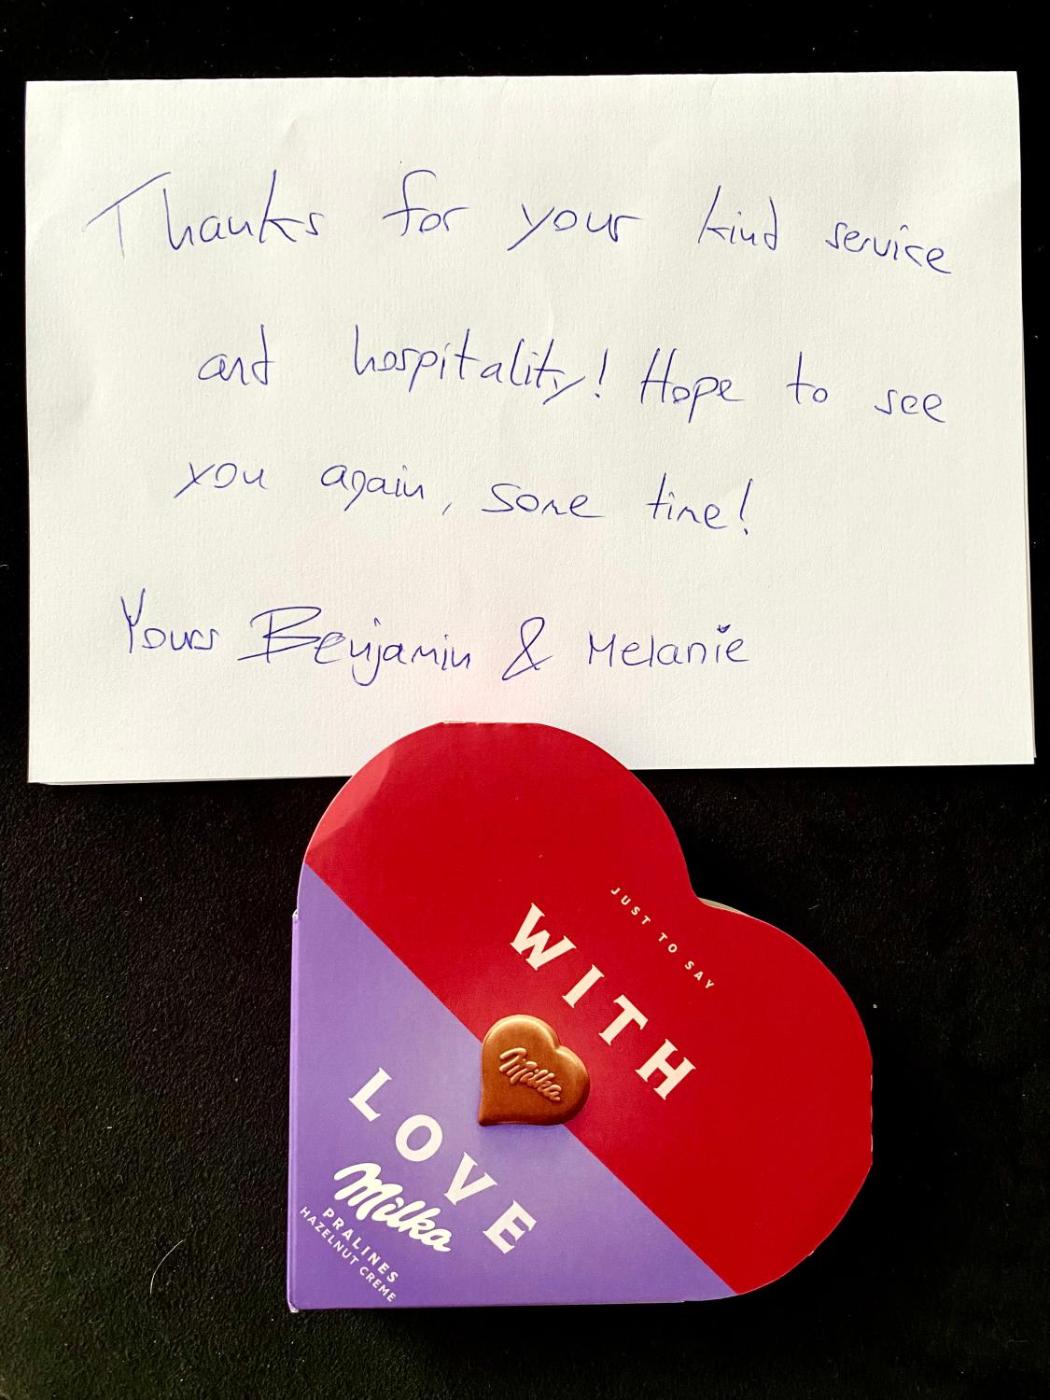 Thanks for your kind service
and hospitality! Hope to see
you again, some time!
Yours Benjamin & Melanie
JUST TO SAY
WITH
LOVE
Milka
Milka
PRALINES
HAZELNUT CREME